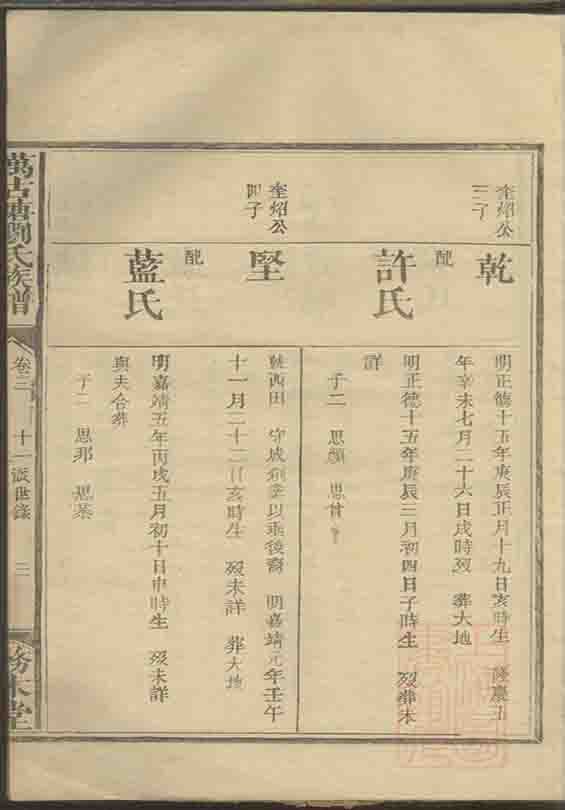 奎紹公
三子
乾
明正德十五年庚辰正月十九日亥時生 隆慶五
年辛未七月二十六日戌時歿 葬大地
配
許氏
明正德十五年庚辰三月初四日子時生 歿葬未
詳
子二 思顏 思曾
奎紹公
四子
堅
陝西田 守成創業以垂後裔 明嘉靖元年壬午
十一月二十二日亥時生 歿未詳 葬大地
配
藍氏
明嘉靖五年丙戌五月初十日申時生 歿未詳
與夫合葬
子二 思那 思棻
萬古塘劉氏族譜
卷三
十一派世錄
三
務本堂